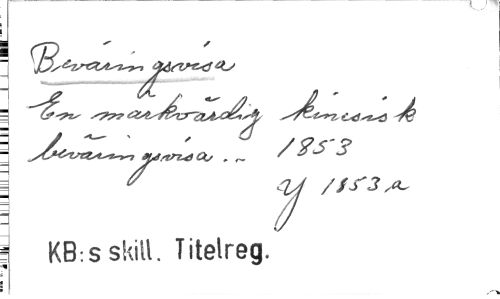 Beväringsvisa
En märkvärdig kinesisk
beväringsvisa .. 1853
Y 1853, a
KB:s skill. Titelreg.